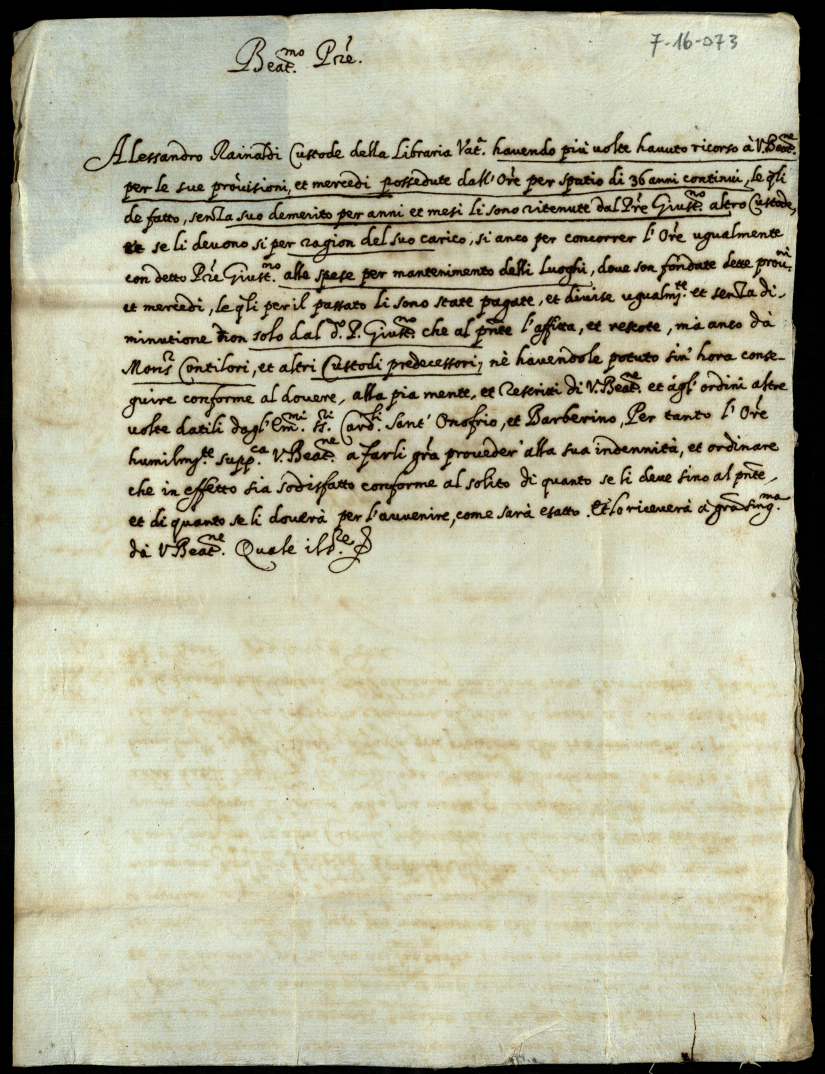 7-16-073
Beat.mo Pre.
Alessandro Rainaldi Custode della Libraria Vat.a havendo più volte havuto ricorso à V. Beat.ne
per le sue provisioni, et mercedi possedute dall' Ore per spatio di 36 anni continui, le qli
de fatto, senza suo demerito per anni et mesi li sono ritenute dal Pre Giust.no altro Custode,
et se li devono si per ragion del suo carico, si anco per concorrer l' Ore ugualmente
con detto Pre Giust.no alle spese per mantenimento delli Luoghi, dove son fondate dette provni.
et mercedi, le qli per il passato li sono state pagate, et divise ugualmte et senza di-
minutione non solo dal d.o P. Giust.no che al pnte l'affitta, et rescote, mà anco dà
Mons.r Contilori, et altri Custodi predecessori, nè havendole potuto sin' hora conse-
guire conforme al dovere, alla pia mente, et rescritti di V. Beat.ne et àgl' ordini altre
volte datili dagl' Em.mi SS.ri Card.li Sant' Onofrio, et Barberino, Per tanto l' Ore
humilmte supp.ca V. Beat.ne a farli gra proveder' alla sua indennità, et ordinare
che in effetto sia sodisfatto conforme al solito di quanto se li deve sino al pnte,
et di quanto se li doverà per l'avvenire, come sarà esatto. Et lo riceverà à gra sing.ma
dà V. Beat.ne. Quale il D.